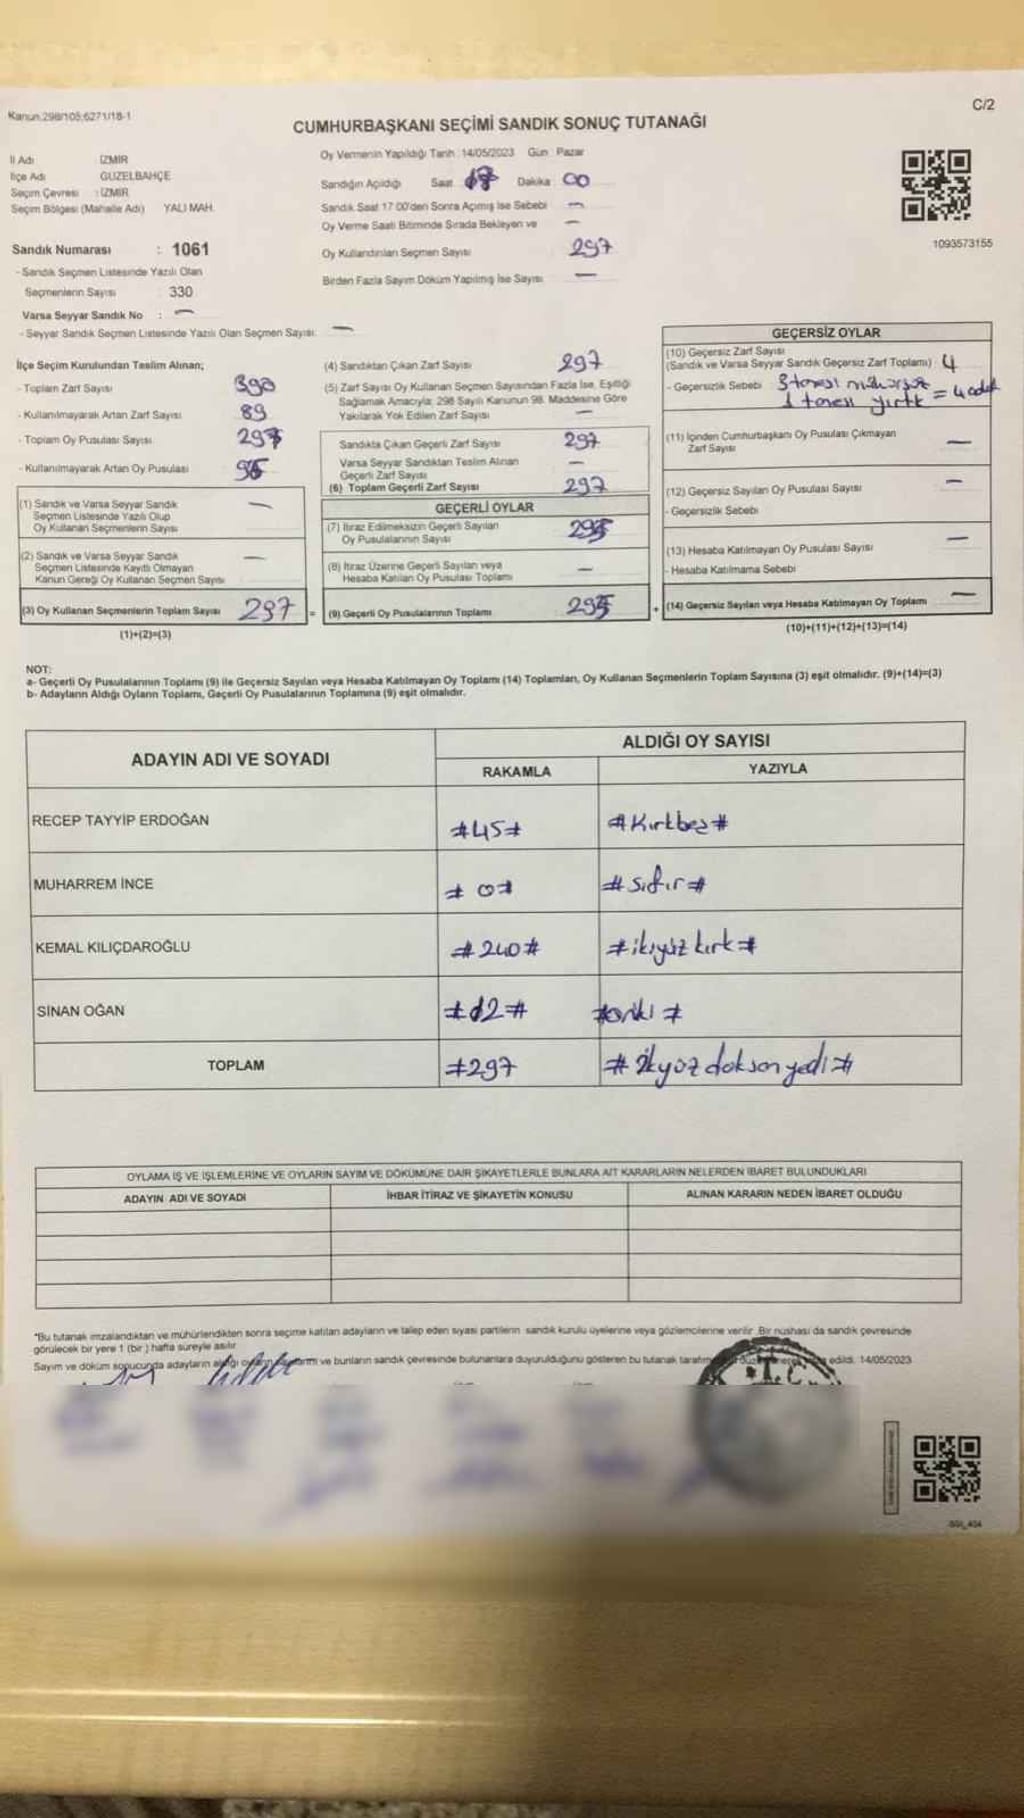 Kanun:298/105;6271/18-1
C/2
CUMHURBAŞKANI SEÇİMİ SANDIK SONUÇ TUTANAĞI
İl Adı : İZMİR
İlçe Adı : GÜZELBAHÇE
Seçim Çevresi : İZMİR
Seçim Bölgesi (Mahalle Adı) YALI MAH.
Oy Vermenin Yapıldığı Tarih: 14/05/2023 Gün: Pazar
Sandığın Açıldığı Saat: 17 Dakika: 00
Sandık Saat 17:00'den Sonra Açımış İse Sebebi —
Oy Verme Saati Bitiminde Sırada Bekleyen ve —
Oy Kullandırılan Seçmen Sayısı 297
Birden Fazla Sayım Döküm Yapılmış İse Sayısı —
1093573155
Sandık Numarası : 1061
- Sandık Seçmen Listesinde Yazılı Olan
Seçmenlerin Sayısı : 330
Varsa Seyyar Sandık No : —
- Seyyar Sandık Seçmen Listesinde Yazılı Olan Seçmen Sayısı: —
İlçe Seçim Kurulundan Teslim Alınan;
- Toplam Zarf Sayısı
- Kullanılmayarak Artan Zarf Sayısı 89
- Toplam Oy Pusulası Sayısı
- Kullanılmayarak Artan Oy Pusulası
(1) Sandık ve Varsa Seyyar Sandık —
Seçmen Listesinde Yazılı Olup
Oy Kullanan Seçmenlerin Sayısı
(2) Sandık ve Varsa Seyyar Sandık —
Seçmen Listesinde Kayıtlı Olmayan
Kanun Gereği Oy Kullanan Seçmen Sayısı
(3) Oy Kullanan Seçmenlerin Toplam Sayısı 297 =
(1)+(2)=(3)
(4) Sandıktan Çıkan Zarf Sayısı 297
(5) Zarf Sayısı Oy Kullanan Seçmen Sayısından Fazla İse, Eşitliği
Sağlamak Amacıyla; 298 Sayılı Kanunun 98. Maddesine Göre
Yakılarak Yok Edilen Zarf Sayısı —
Sandıkta Çıkan Geçerli Zarf Sayısı 297
Varsa Seyyar Sandıktan Teslim Alınan —
Geçerli Zarf Sayısı
(6) Toplam Geçerli Zarf Sayısı 297
GEÇERLİ OYLAR
(7) İtiraz Edilmeksizin Geçerli Sayılan
Oy Pusulalarının Sayısı
(8) İtiraz Üzerine Geçerli Sayılan veya —
Hesaba Katılan Oy Pusulası Toplamı
(9) Geçerli Oy Pusulalarının Toplamı
GEÇERSİZ OYLAR
(10) Geçersiz Zarf Sayısı
(Sandık ve Varsa Seyyar Sandık Geçersiz Zarf Toplamı) : 4
- Geçersizlik Sebebi 3 tanesi = 4 adet
1 tanesi yırtık
(11) İçinden Cumhurbaşkanı Oy Pusulası Çıkmayan —
Zarf Sayısı
(12) Geçersiz Sayılan Oy Pusulası Sayısı —
- Geçersizlik Sebebi
(13) Hesaba Katılmayan Oy Pusulası Sayısı —
- Hesaba Katılmama Sebebi
+ (14) Geçersiz Sayılan veya Hesaba Katılmayan Oy Toplamı —
(10)+(11)+(12)+(13)=(14)
NOT:
a- Geçerli Oy Pusulalarının Toplamı (9) ile Geçersiz Sayılan veya Hesaba Katılmayan Oy Toplamı (14) Toplamları, Oy Kullanan Seçmenlerin Toplam Sayısına (3) eşit olmalıdır. (9)+(14)=(3)
b- Adayların Aldığı Oyların Toplamı, Geçerli Oy Pusulalarının Toplamına (9) eşit olmalıdır.
ADAYIN ADI VE SOYADI
ALDIĞI OY SAYISI
RAKAMLA YAZIYLA
RECEP TAYYİP ERDOĞAN #45# #Kırkbeş#
MUHARREM İNCE #0# #sıfır#
KEMAL KILIÇDAROĞLU #240# #ikiyüz kırk#
SİNAN OĞAN #12# #oniki#
TOPLAM #297 #ikyüz doksan yedi#
OYLAMA İŞ VE İŞLEMLERİNE VE OYLARIN SAYIM VE DÖKÜMÜNE DAİR ŞİKAYETLERLE BUNLARA AİT KARARLARIN NELERDEN İBARET BULUNDUKLARI
ADAYIN ADI VE SOYADI İHBAR İTİRAZ VE ŞİKAYETİN KONUSU ALINAN KARARIN NEDEN İBARET OLDUĞU
*Bu tutanak imzalandıktan ve mühürlendikten sonra seçime katılan adayların ve talep eden siyasi partilerin sandık kurulu üyelerine veya gözlemcilerine verilir. Bir nüshası da sandık çevresinde
görülecek bir yere 1 (bir) hafta süreyle asılır.
Sayım ve döküm sonucunda adayların aldığı ve bunların sandık çevresinde bulunanlara duyurulduğunu gösteren bu tutanak edildi. 14/05/2023
T.C.